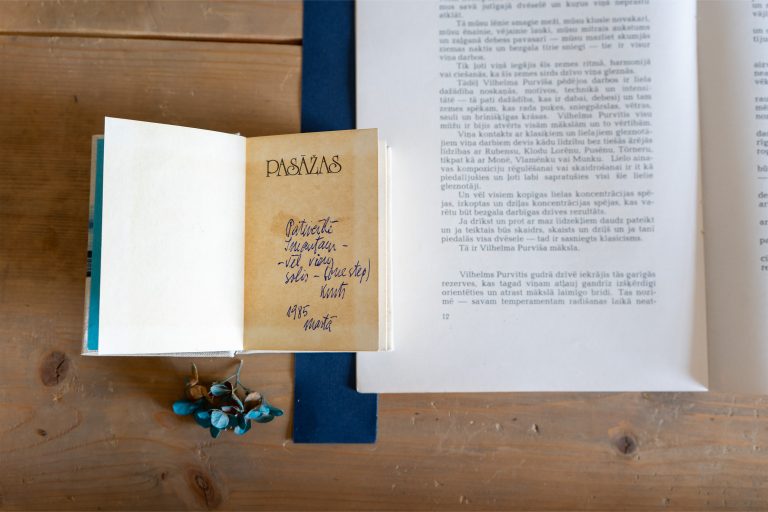 PASĀŽAS
Imantam –
– vēl viens
solis – (one step)
1985
martā
mos savā jutīgajā dvēselē un kuras viņa neprastu
atklāt.
Tā mūsu lēnie smagie meži, mūsu klusie novakari,
mūsu ēnainie, vējainie lauki, mūsu mitrais aukstums
un zaļganā debess pavasarī — mūsu mazliet skumjās
ziemas naktis un bezgala tīrie sniegi — tie ir visur
viņa darbos.
Tik ļoti viņā iegājis šīs zemes ritms, harmonijā
vai ciešanās, ka šīs zemes sirds dzīvo viņa gleznās.
Tādēļ Vilhelma Purvīša pēdējos darbos ir liela
dažādība noskaņās, motīvos, technikā un intensi-
tātē — tā pati dažādība, kas ir dabai, debesij un tam
zemes spēkam, kas rada puķes, sniegpārslas, vētras,
sauli un brīnišķīgas krāsas. Vilhelms Purvītis visu
mūžu ir bijis atvērts visām mākslām un to vērtībām.
Viņa kontakts ar klasiķiem un lielajiem gleznotā-
jiem viņa darbiem devis kādu līdzību bez tiešās ārējās
līdzības ar Rubensu, Klodu Lorēnu, Pusēnu, Törneru,
tikpat kā ar Monē, Vlamēnku vai Munku. Lielo aina-
vas kompoziciju rēgulēšanai vai skaidrošanai ir it kā
piedalījušies un ļoti labi sapratušies visi šie lielie
gleznotāji.
Un vēl visiem kopīgas lielas koncentrācijas spē-
jas, izkoptas un dziļas koncentrācijas spējas, kas va-
rētu būt bezgala darbīgas dzīves rezultāts.
Ja drīkst un prot ar maz līdzekļiem daudz pateikt
un ja teiktais būs skaidrs, skaists un dziļš un ja tanī
piedalās visa dvēsele — tad ir sasniegts klasicisms.
Tā ir Vilhelma Purvīša māksla.
Vilhelms Purvītis gudrā dzīvē iekrājis tās garīgās
rezerves, kas tagad viņam atļauj gandrīz izšķērdīgi
orientēties un atrast mākslā laimīgo brīdi. Tas nozī-
mē — savam temperamentam radīšanas laikā neat-
12